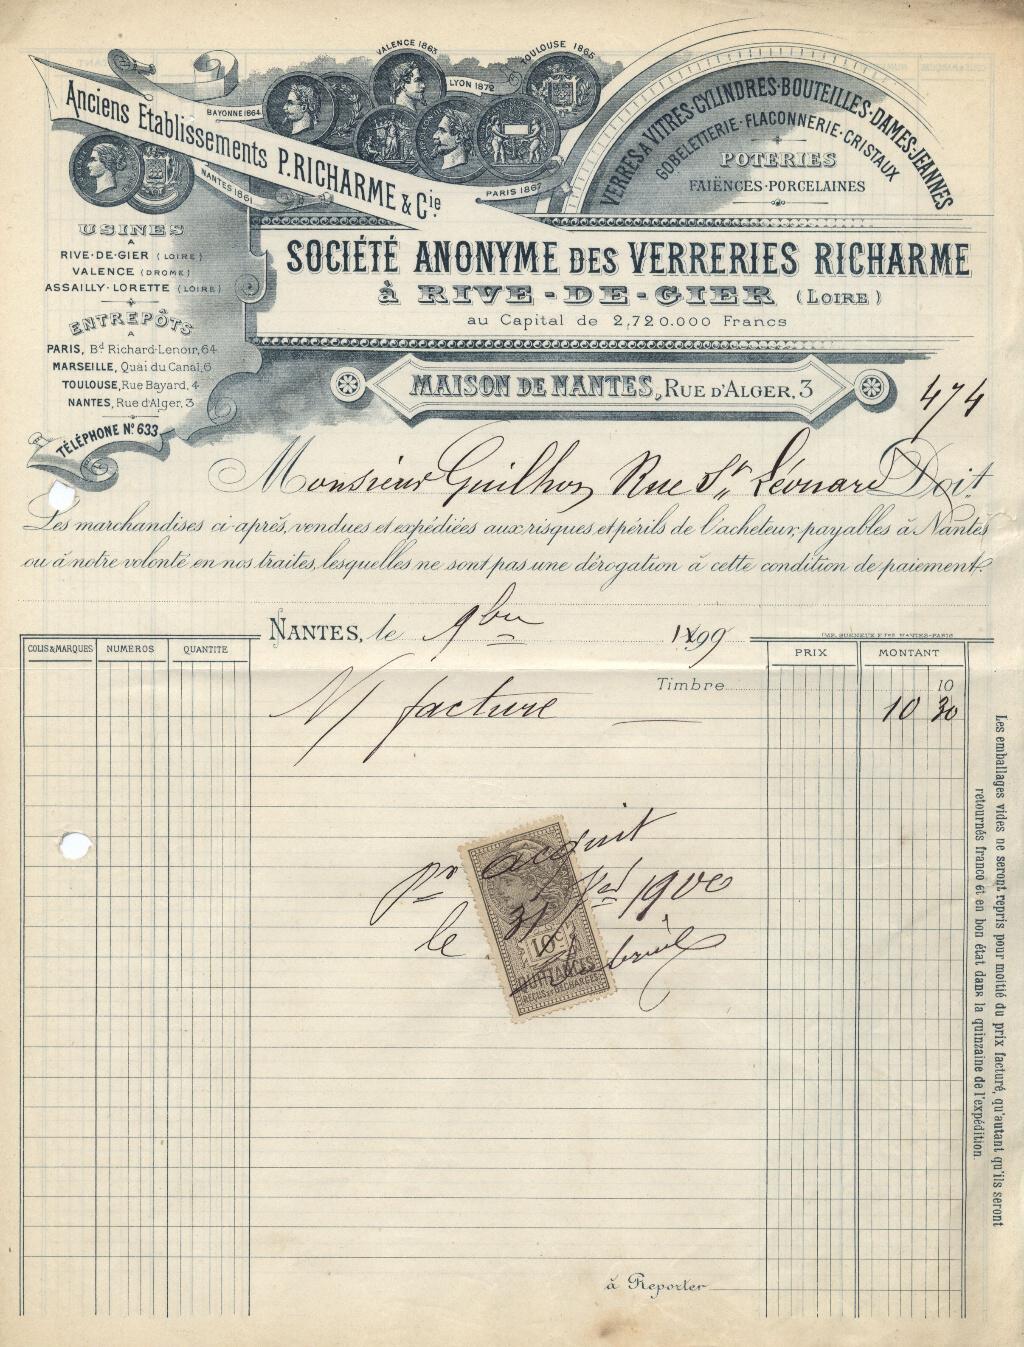 VALENCE 1863
TOULOUSE 1865
LYON 1872
BAYONNE 1864
NANTES 1861
PARIS 1867
Anciens Etablissements P. RICHARME & Cie.
VERRES A VITRES-CYLINDRES-BOUTEILLES-DAMES-JEANNES
GOBELETTERIE-FLACONNERIE-CRISTAUX
POTERIES
FAÏENCES-PORCELAINES
USINES
A
RIVE-DE-GIER (LOIRE)
VALENCE (DROME)
ASSAILLY-LORETTE (LOIRE)
ENTREPÔTS
A
PARIS, Bd Richard-Lenoir, 64
MARSEILLE, Quai du Canal, 6
TOULOUSE, Rue Bayard, 4
NANTES, Rue d'Alger, 3
TÉLÉPHONE No 633
SOCIÉTÉ ANONYME DES VERRERIES RICHARME
à RIVE-DE-GIER (LOIRE)
au Capital de 2,720.000 Francs
MAISON DE NANTES, RUE D'ALGER, 3
474
Monsieur Guilhon Rue St Léonard Doit
Les marchandises ci-après, vendues et expédiées aux risques et périls de l'acheteur, payables à Nantes
ou à notre volonté en nos traites, lesquelles ne sont pas une dérogation à cette condition de paiement.
NANTES, le 9bre 1899
COLIS & MARQUES NUMEROS QUANTITE PRIX MONTANT
Timbre 10
N/ facture 10 30
pr acquit
le 31 1900
10c
QUITTANCES
REÇUS ET DÉCHARGES
à Reporter
Les emballages vides ne seront repris pour moitié du prix facturé, qu'autant qu'ils seront
retournés franco et en bon état dans la quinzaine de l'expédition.